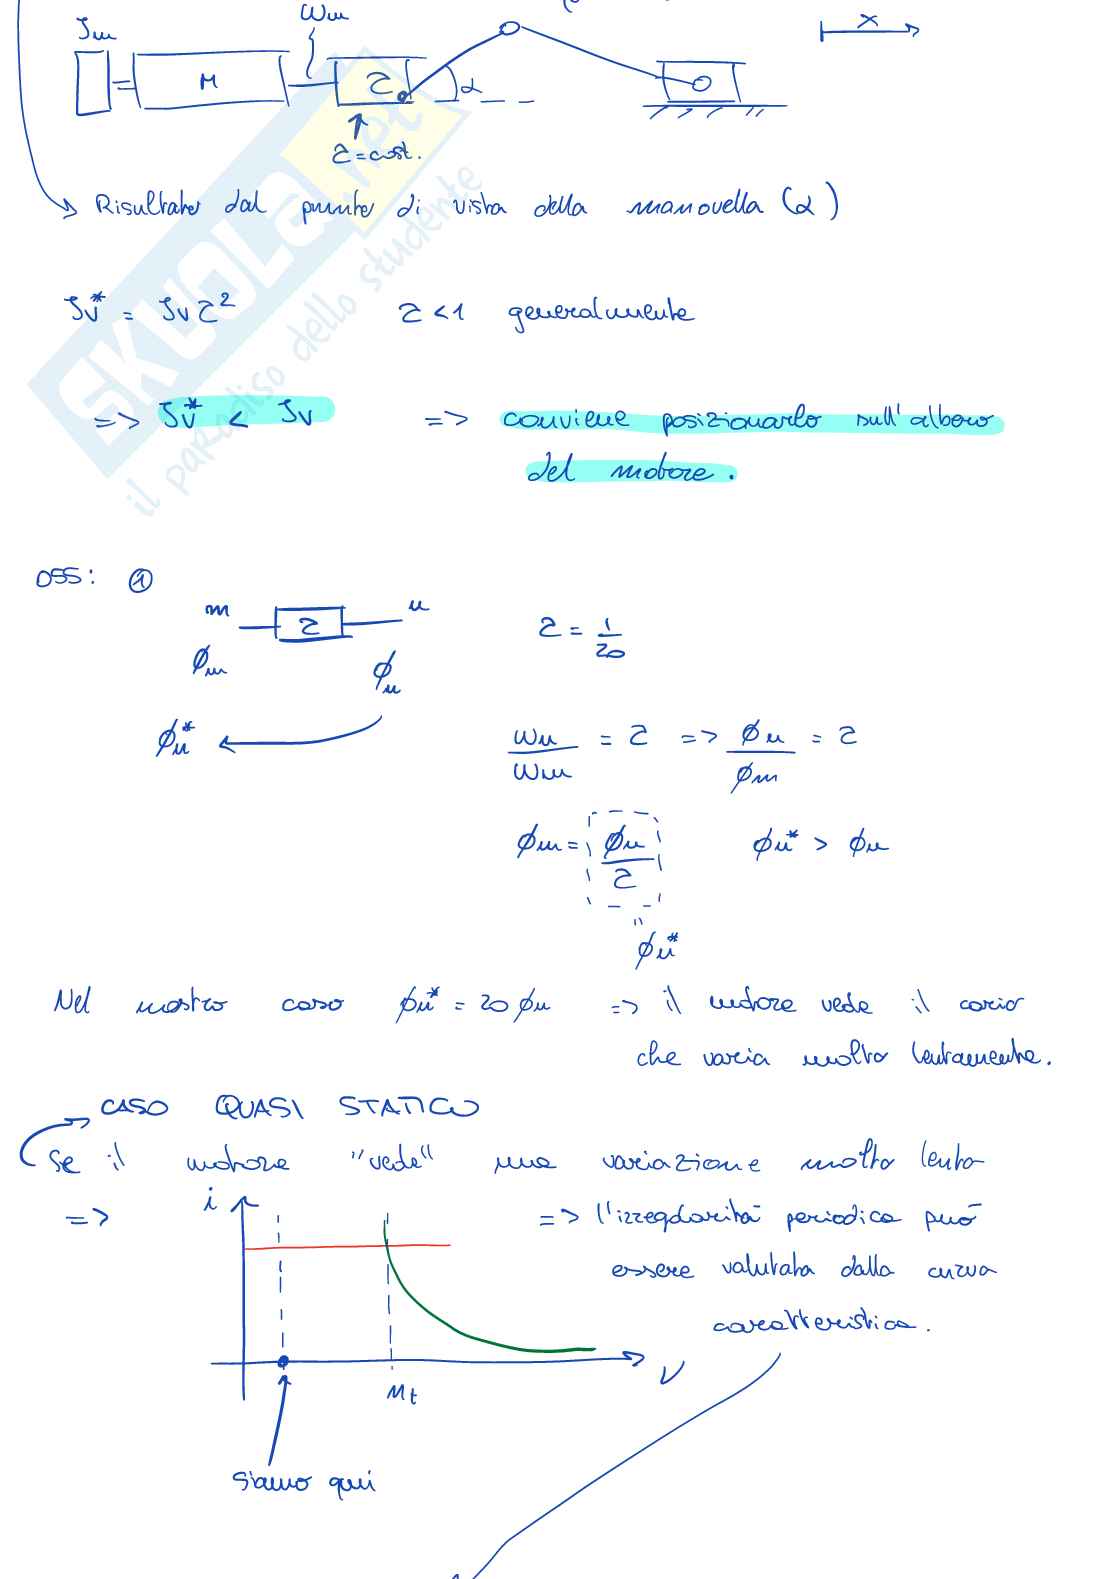 Jm
ωm
M
τ
α
x
τ = cost.
Risultato dal punto di vista della manovella (α)
Jv* = Jv τ²
τ < 1 generalmente
=> Jv* < Jv => conviene posizionarlo sull'albero
del motore.
OSS: ①
m
τ
u
τ = 1/20
ϕm
ϕu
ϕu*
ωu/ωm = τ => ϕu/ϕm = τ
ϕm = ϕu/τ
ϕu* > ϕu
" ϕu*
Nel nostro caso ϕu* = 20 ϕu => il motore vede il carico
che varia molto lentamente.
CASO QUASI STATICO
Se il motore "vede" una variazione molto lenta
=>
i
=> l'irregolarità periodica può
essere valutata dalla curva
caratteristica.
ν
Mt
Siamo qui
SKUOLA.net
il paradiso dello studente